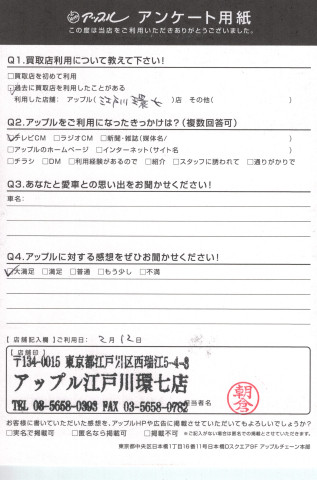 アップル アンケート用紙
この度は当店をご利用いただきありがとうございました。
Q1.買取店利用について教えて下さい!
□買取店を初めて利用
☑過去に買取店を利用したことがある
利用した店舗: アップル(江戸川環七)店 その他( )
Q2.アップルをご利用になったきっかけは?(複数回答可)
☑テレビCM □ラジオCM □新聞・雑誌(媒体名/ )
□アップルのホームページ □インターネット(サイト名 )
□チラシ □DM □利用経験があるので □紹介 □スタッフに誘われて □通りがかりで
Q3.あなたと愛車との思い出をお聞かせください!
車名:
Q4.アップルに対する感想をぜひお聞かせください!
☑大満足 □満足 □普通 □もう少し □不満
[店舗記入欄]ご利用日: 2月12日
[店舗印]
〒134-0015 東京都江戸川区西瑞江5-4-3
アップル江戸川環七店
TEL 03-5658-0393 FAX 03-5658-0782
担当者名
朝倉
お客様に書いていただいた感想を、アップルHPや広告に掲載させていただいてもよろしいでしょうか?
□実名で掲載可 □匿名なら掲載可 □掲載不可 ※ご記入がない場合は匿名での掲載とさせていただきます。
東京都中央区日本橋1丁目16番11号日本橋DスクエアBF アップルチェーン本部